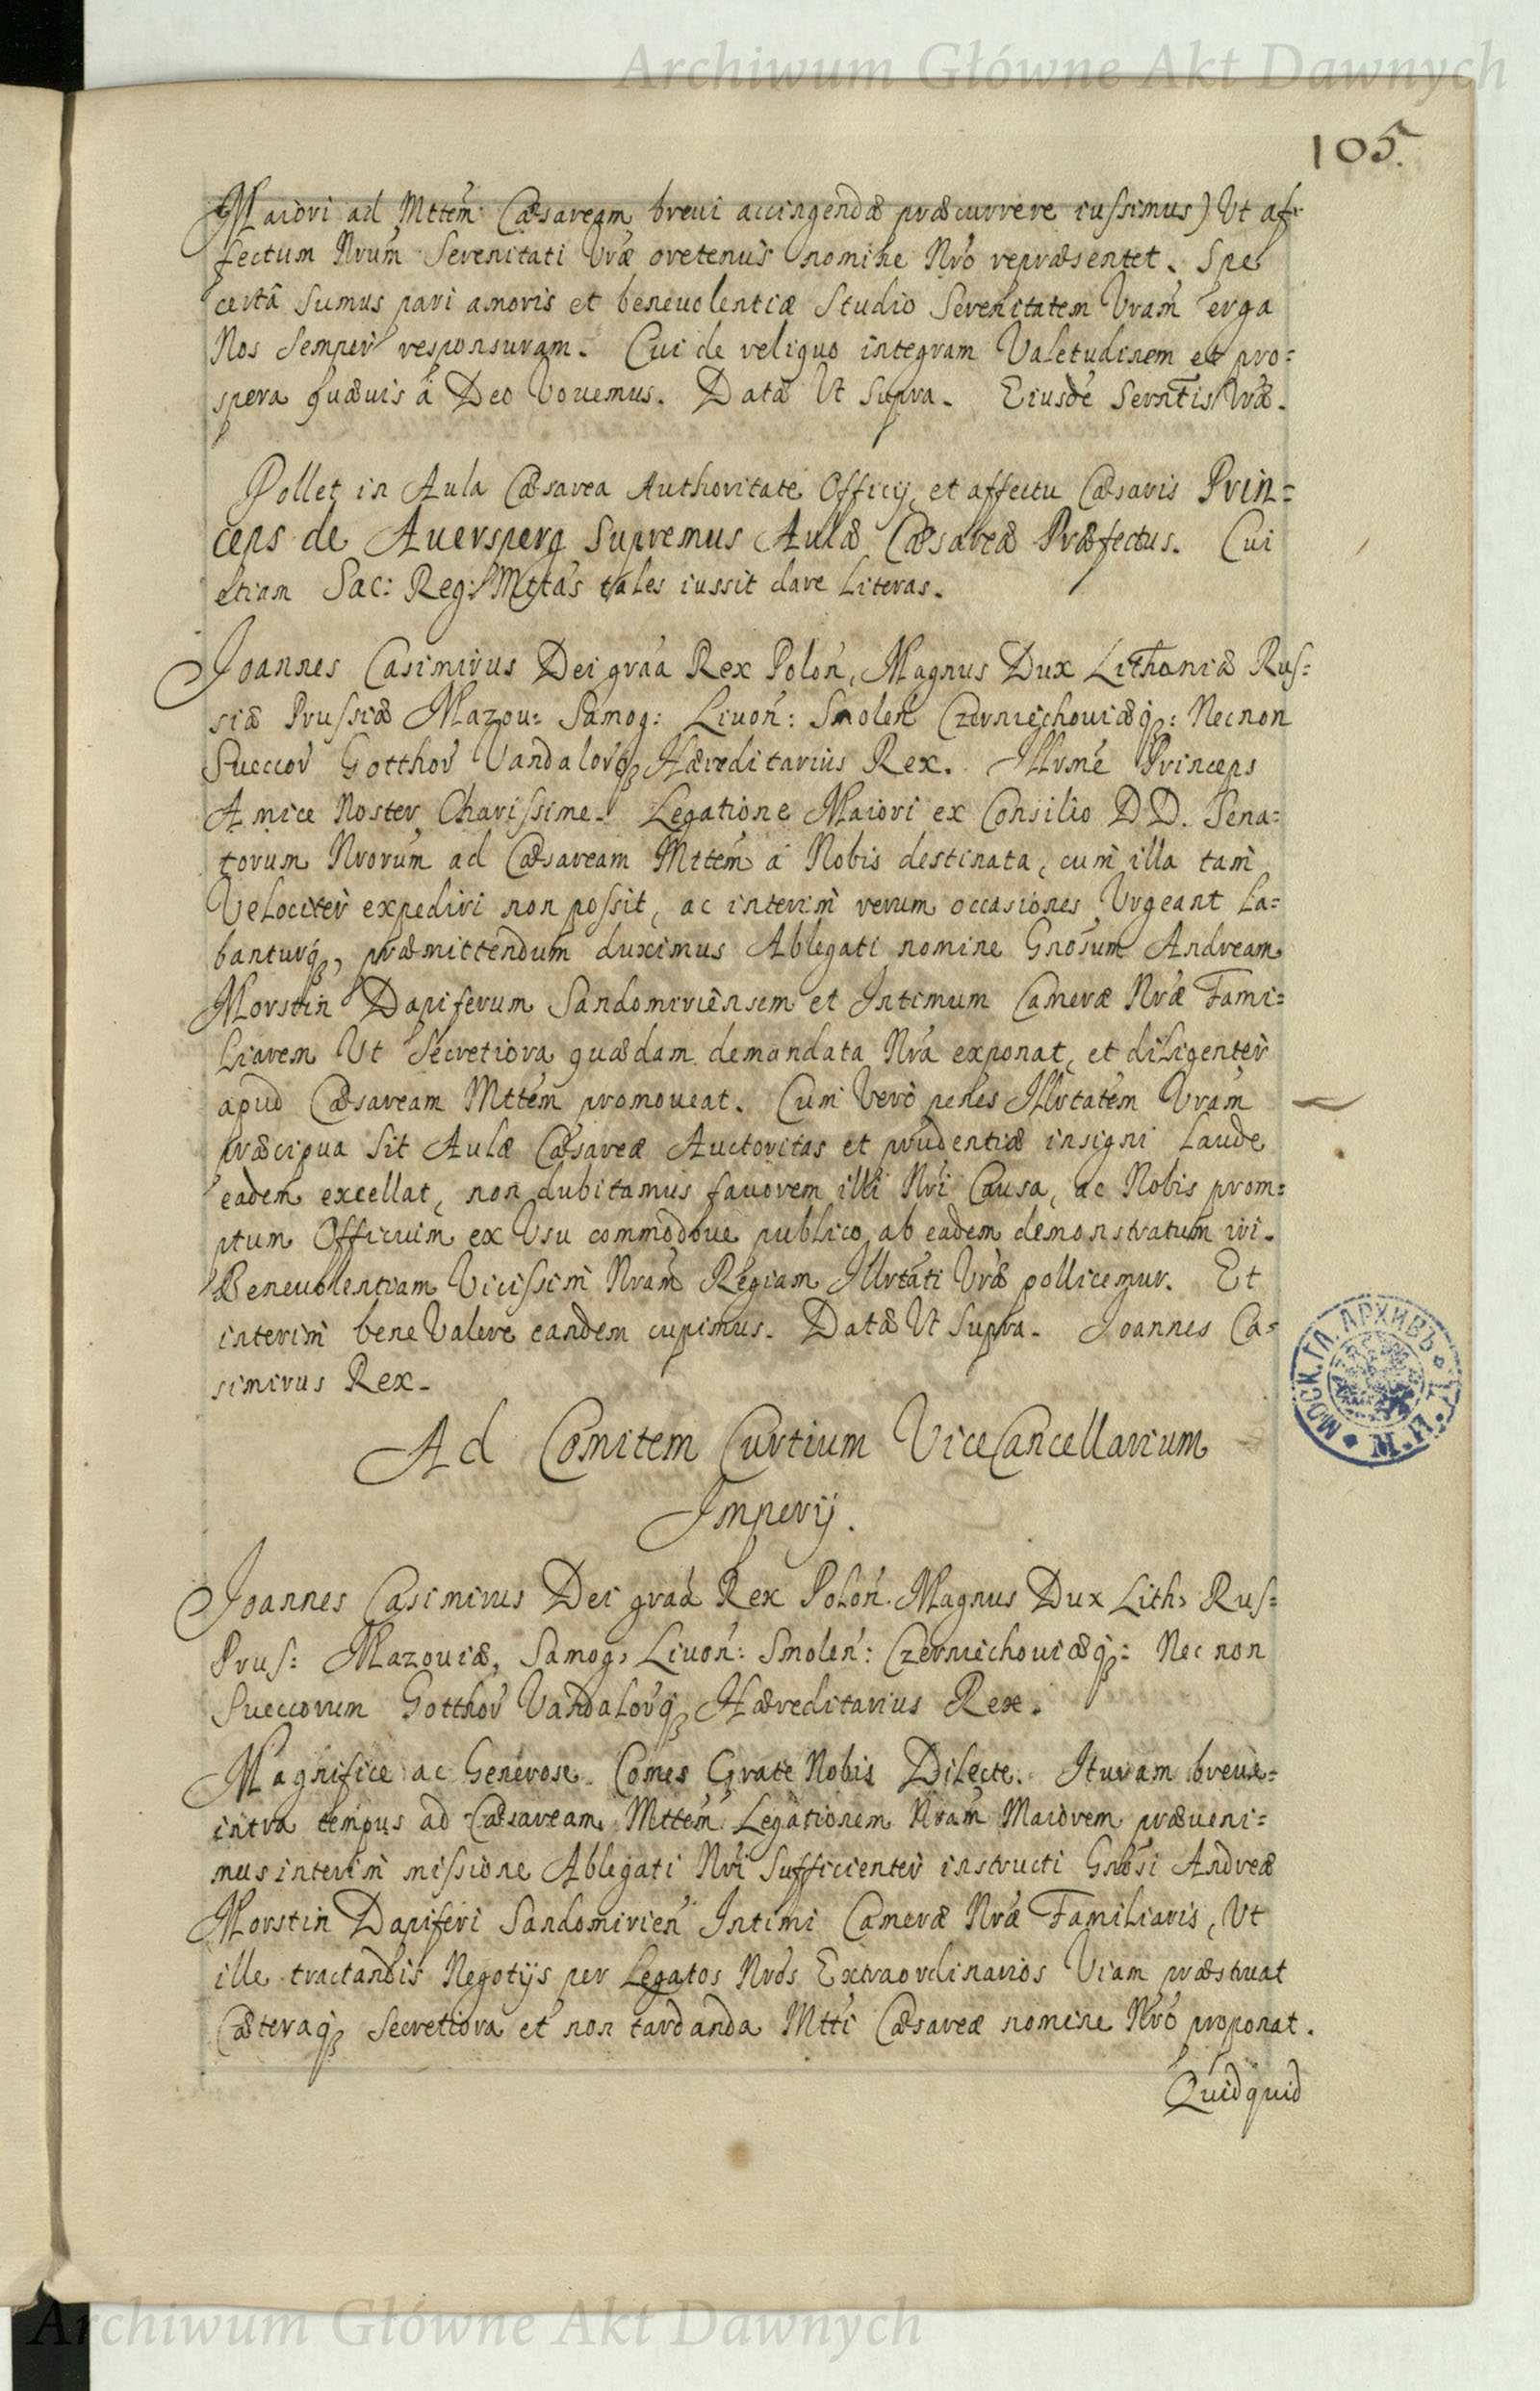 Archiwum Główne Akt Dawnych
105.
Maiori ad Mttem Cæsaream breui accingendæ præcurrere iussimus) Ut af=
fectum Nrum Serenitati Vræ oretenus nomine Nro repræsentet. Spe
certâ sumus pari amoris et beneuolentiæ Studio Serenitatem Vram erga
Nos Semper responsuram. Cui de reliquo integram Valetudinem et pro=
spera quæuis à Deo Vouemus. Datæ Ut Supra. Eiusdē Serntis Vræ.
Pollet in Aula Cæsarea Authoritate Officij, et affectu Cæsaris Prin=
ceps de Auersperg Supremus Aulæ Cæsareæ Præfectus. Cui
etiam Sac: Reg: Mttas tales iussit dare Literas.
Joannes Casimirus Dei graa Rex Polon, Magnus Dux Lithaniæ Rus=
siæ Prussiæ Mazou: Samog: Liuon: Smolen Czerniechouiæq: Necnon
Sueccor Gotthor Vandalorq Hæreditarius Rex. Illrme Princeps
Amice Noster Charissime. Legatione Maiori ex Consilio DD. Sena=
torum Nrorum ad Cæsaream Mttem à Nobis destinata, cum illa tam
Velociter expediri non possit, ac interim rerum occasiones Urgeant La=
banturq, præmittendum duximus Ablegati nomine Gnosum Andream
Morstin Dapiferum Sandomiriensem et Intimum Cameræ Nræ Fami=
liarem Ut Secretiora quædam demandata Nra exponat, et diligenter
apud Cæsaream Mttem promoueat. Cum Vero penes Illrtatem Vram
præcipua sit Aulæ Cæsareæ Auctoritas et prudentiæ insigni Laude
eadem excellat, non dubitamus fauorem illi Nri Causa, ac Nobis prom=
ptum Officium ex Usu commodoue publico ab eadem demonstratum iri.
Beneuolentiam Vicissim Nram Regiam Illrtati Vræ pollicemur. Et
interim bene Valere eandem cupimus. Datæ Ut Supra. Joannes Ca=
simirus Rex.
Ad Comitem Curtium ViceCancellarium
Imperij.
Joannes Casimirus Dei graa Rex Polon. Magnus Dux Lith: Rus=
Prus: Mazouiæ, Samog: Liuon: Smolen: Czerniechouiæq: Necnon
Sueccorum Gotthor Vandalorq Hæreditarius Rex.
Magnifice ac Generose Comes Grate Nobis Dilecte. Ituram breue=
intra tempus ad Cæsaream Mttem Legationem Nram Maiorem præueni=
mus interim missione Ablegati Nri Sufficienter instructi Gnosi Andreæ
Morstin Dapiferi Sandomirien Intimi Cameræ Nræ Familiaris, Ut
ille tractandis Negotijs per Legatos Nros Extraordinarios Viam præstruat
Cæteraq Secretiora et non tardanda Mtti Cæsareæ nomine Nro proponat.
Quidquid
МОСК. ГЛ. АРХИВЪ
Archiwum Główne Akt Dawnych